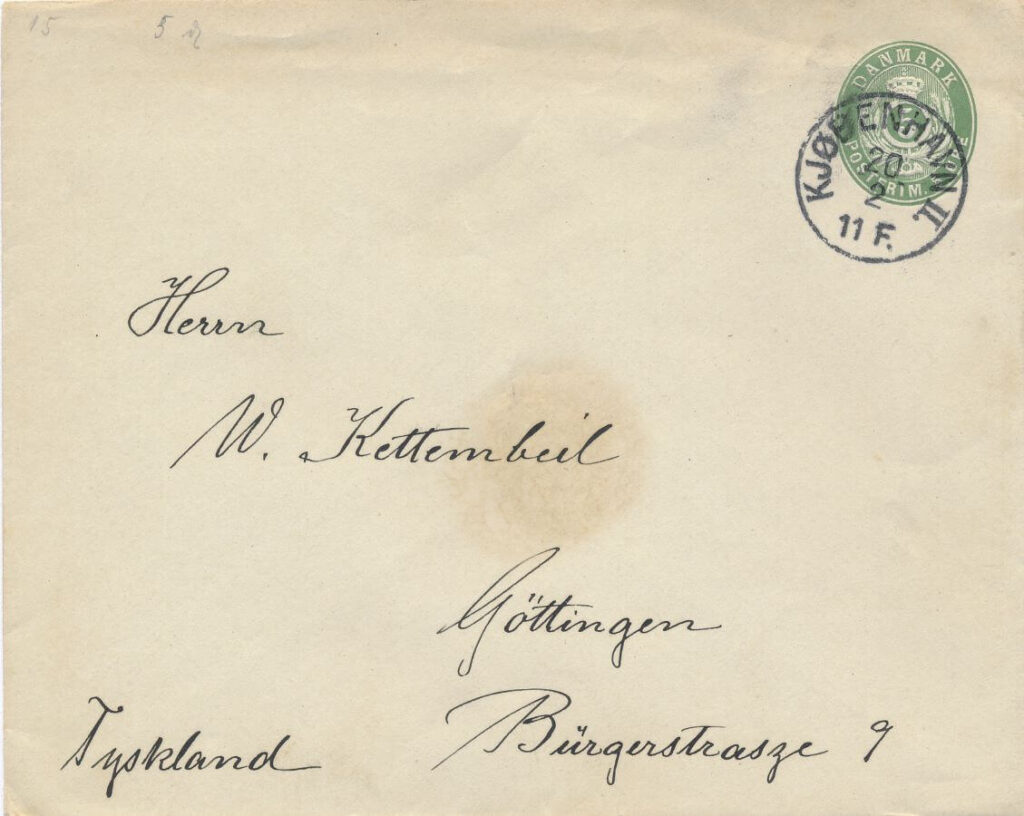 15 5
DANMARK
POSTFRIM.
KJØBENHAVN II.
20
2
11 F.
Herrn
W. Kettembeil
Göttingen
Tyskland Bürgerstrasze 9